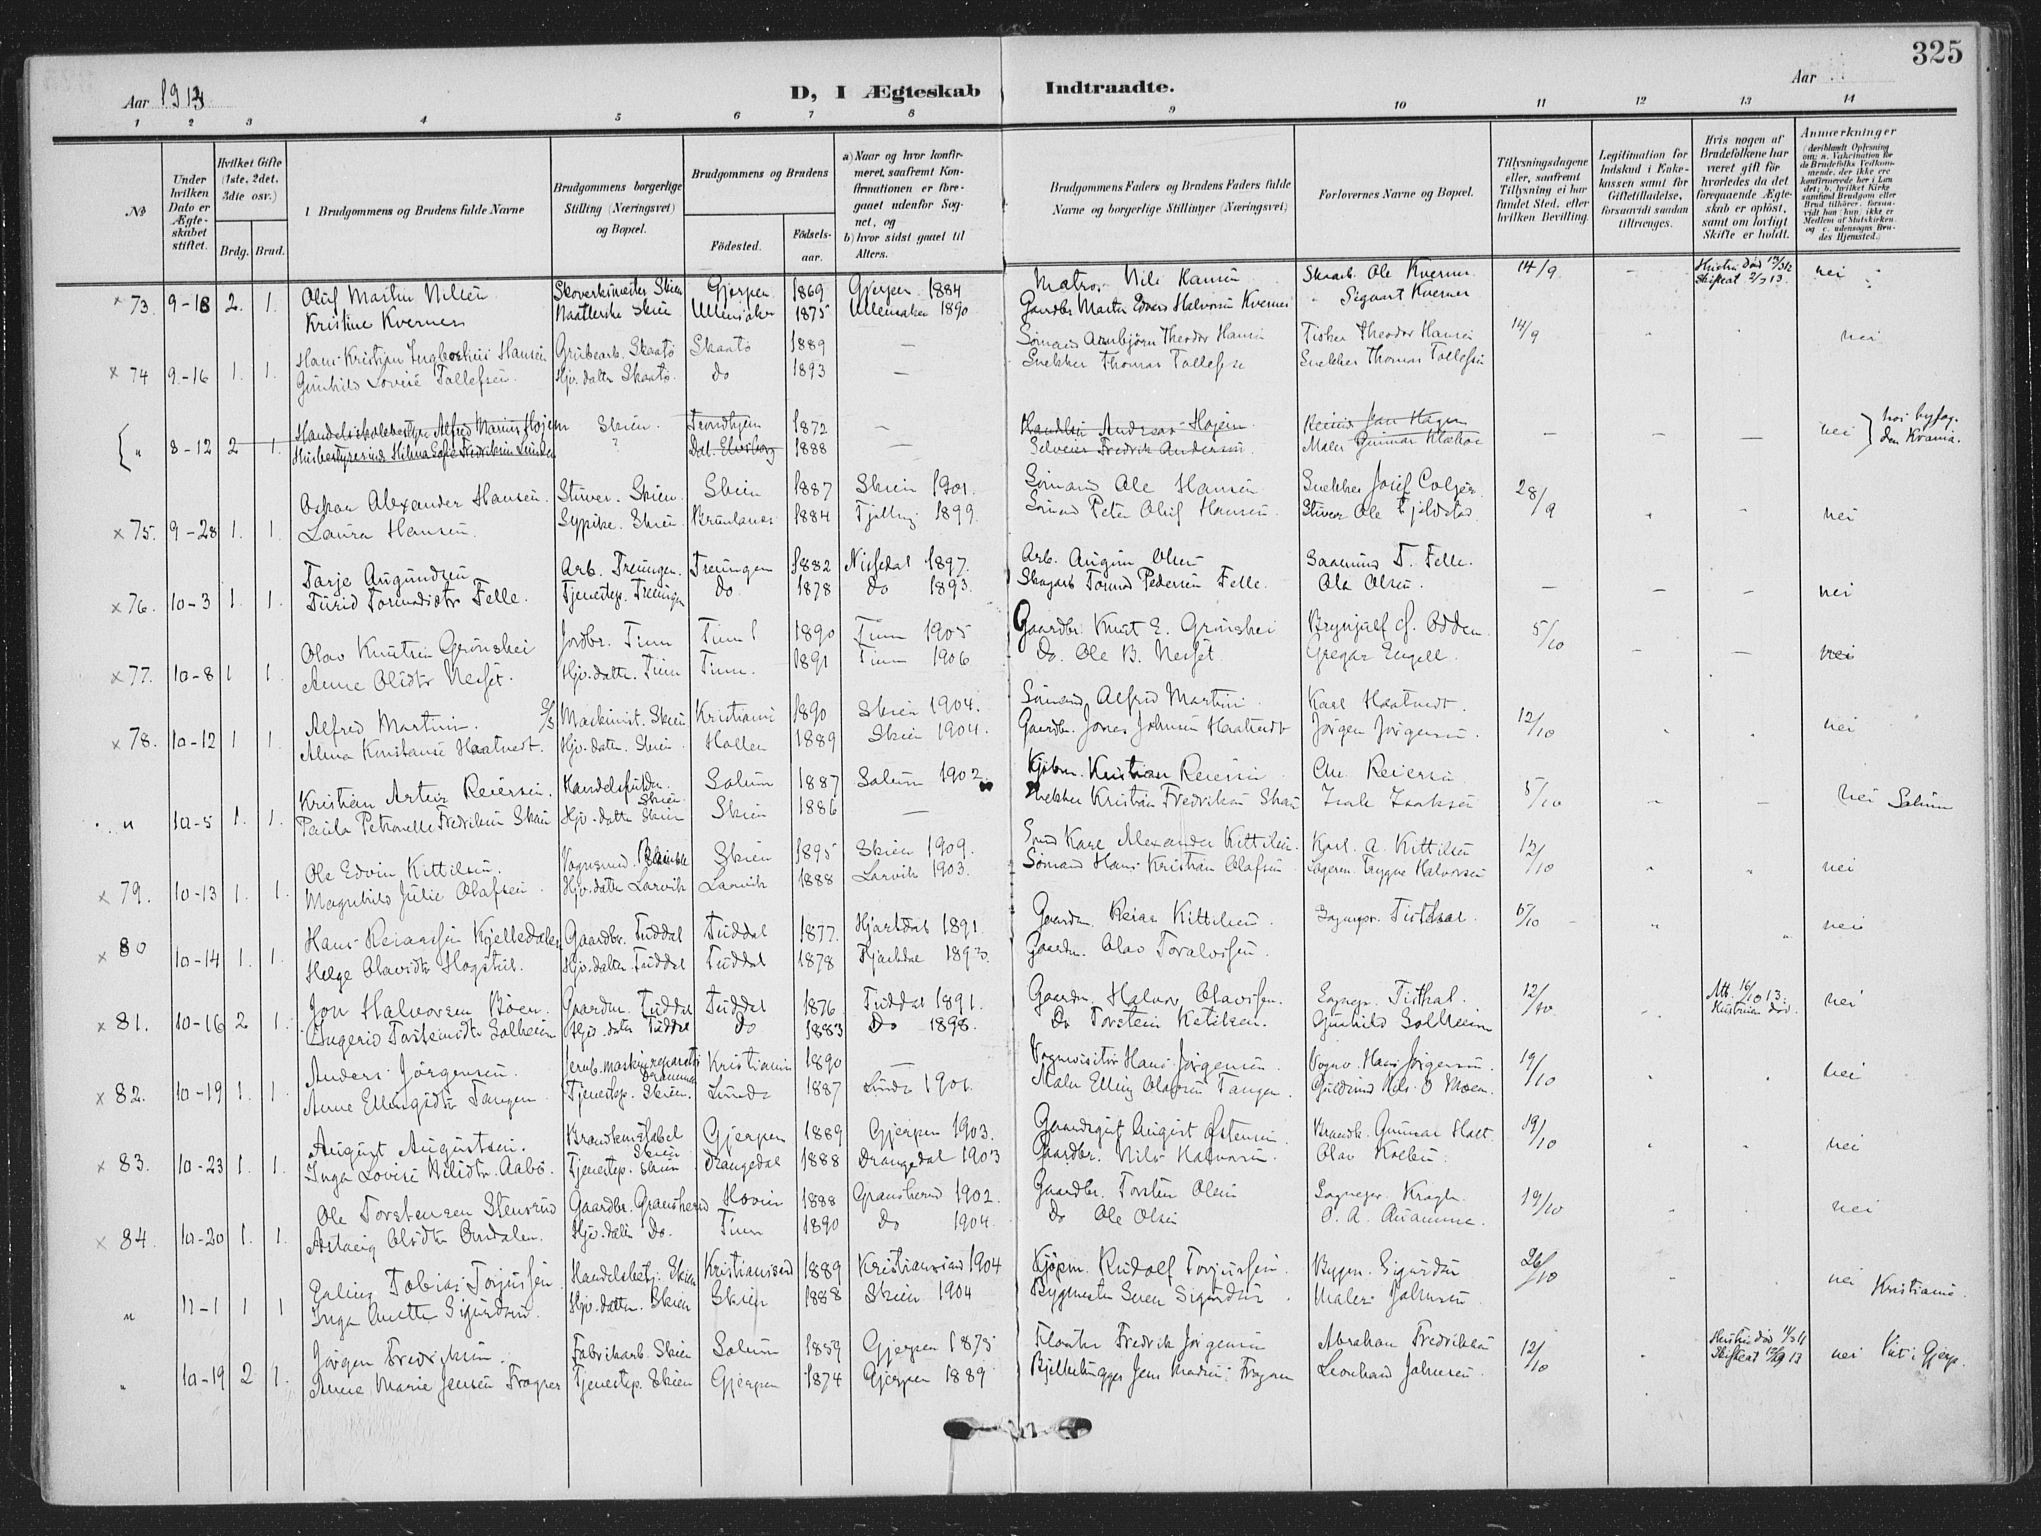 325
Aar 1913
D, I Ægteskab Indtraadte.
Aar
1 2 3 4 5 6 7 8 9 10 11 12 13 14
No
Under hvilken Dato er Ægteskabet stiftet.
Hvilket Gifte (1ste, 2det, 3die osv.)
Brdg. Brud.
Brudgommens og Brudens fulde Navne
Brudgommens borgerlige Stilling (Næringsvei) og Bopæl.
Brudgommens og Brudens
Fødested.
Fødselsaar.
a) Naar og hvor konfirmeret, saafremt Konfirmationen er foregaaet udenfor Sognet, og
b) hvor sidst gaaet til Alters.
Brudgommens Faders og Brudens Faders fulde Navne og borgerlige Stillinger (Næringsvei)
Forlovernes Navne og Bopæl.
Tillysningsdagene eller, saafremt Tillysning ei har fundet Sted, efter hvilken Bevilling.
Legitimation for Indskud i Enkekassen samt for Giftetilladelse, forsaavidt saadan tiltrænges.
Hvis nogen af Brudefolkene har været gift før hvorledes da det foregaaende Ægteskab er opløst, samt om lovligt Skifte er holdt.
Anmærkninger (deriblandt Oplysning om: a. Vakcination for de Brudefolks Vedkommende, der ikke ere konfirmerede her i Landet; b. hvilket Kirkesamfund Brudgom eller Brud tilhører, forsaavidt han (hun) ikke er Medlem af Statskirken, og c. udensogns Brudes Hjemsted.)
× 73. 9-13 2. 1. Oluf Martin Nilsen Skien Gjerpen 1869 Gjerpen 1884 Matros Nils Hansen Ole Kverner 14/9 - nei
Kristine Kverner Skien Ullensaker 1875 Ullensaker 1890 Gaardbr. Martin Edvard Halvorsen Kverner Sigvart Kverner
× 74 9-16 1. 1. Hans Kristian Ingbert Hansen Grubearb. Skaatø Skaatø 1889 - Sømand Arnbjørn Theodor Hansen Fisker Theodor Hansen 14/9 nei
Gunhild Lovise Tollefsen. Hjv. datter Skaatø. do 1893 - Snekker Thomas Tollefsen Snekker Thomas Tollefsen
" 8-12 2 1. Handelsskolebestyrer Alfred Marius Hojem Skien. Trondhjem 1872 - Andreas Hojem - - - nei
Husbestyrerinde Hilma Sofie Fredriksen Lunde " 1888 - Fredrik Andersen Maler Gunnar
× 75. 9-28 1. 1. Oskar Alexander Hansen. Stuver. Skien. Skien 1887 Skien 1901. Sømand Ole Hansen Snekker Josef 28/9 nei
Laura Hansen. Sypike. Skien Brunlanes 1884 Tjølling 1899. Sømand Peter Oluf Hansen. Stuver Ole Fjeldstad.
× 76. 10-3 1. 1. Tarje Augundsen Arb. Treungen. Treungen 1882 Nissedal 1897. Arb. Augun Olsen Saamund T. Felle. - - - nei
Turid Tormodsdtr Felle. Tjenestep. Treungen Do 1878 Do 1893. Skogarb Tormod Pedersen Felle. Ole Olsen.
× 77. 10-8 1 1. Olav Knutsen Grønshei Jordbr. Tinn Tinn 1890 Tinn 1905 Gaardbr. Knut E. Grønshei Brynjulf G. Odden. 5/10 - - nei
Anne Olsdtr Nerset. Hjv. datter. Tinn Tinn. 1891 Tinn 1906 Do. Ole B. Nerset. Gregar Engell.
× 78. 10-12 1 1. Alfred Martinsen. Maskinist. Skien Kristiania 1890 Skien 1904. Sømand Alfred Martinsen Karl Haatvedt. 12/10 nei
Alma Konstanse Haatvedt. Hjv. datter. Skien. Hollen 1889 Skien 1904. Gaardbr. Jones Johnsen Haatvedt Jørgen Jørgensen.
" 10-5 1. 1. Kristian Artur Reiersen. Skien Solum 1887 Solum 1902. Kjøbm. Kristian Reiersen Chr. Reiersen 5/10 - nei Solum
Paula Petronelle Fredriksen Skau Hjv. datter Skien Skien 1886 - Snekker Kristian Fredriksen Skau Isak Isaksen
× 79. 10-13 1. 1. Ole Edvin Kittilsen. Vognmand Skien 1895 Skien 1909. Karl Alexander Kittilsen. Karl. A. Kittilsen 12/10 nei
Magnhild Julie Olafsen. Hjv. datter Larvik Larvik 1888 Larvik 1903. Sømand Hans Kristian Olafsen Trygve Halvorsen
× 80 10-14 1. 1. Hans Reiarssen Kjelledalen Gaardbr. Tuddal Tuddal 1877. Hjartdal 1891 Gaardm. Reiar Kittilsen. Sogneprs. Tisthal. 5/10 nei
Helge Olavsdtr Hogstul. Hjv. datter. Tuddal Tuddal 1878 Hjartdal 1893. Gaardm. Olav Toralvsen.
× 81. 10-16 2 1. Jon Halvorsen Bøen. Gaardm. Tuddal Tuddal 1876. Tuddal 1891. Gaardm. Halvor Olavsen. Sognepr. Tisthal. 12/10 Att. 16/10 13. Hustruen død. nei
Ingerid Torsteinsdtr Solheim Hjv. datter Tuddal Do 1883 Do 1898. Do Torstein Ketilsen. Gunhild Solheim
× 82. 10-19 1. 1. Anders Jørgensen. Jernb. maskinreparatør Drammen Kristiania 1890 - Vognvisitør Hans Jørgensen. Vognv. Hans Jørgensen. 19/10 nei
Anne Ellingsdtr Tangen. Tjenestep. Skien. Lunde 1887 Lunde 1901. Maler Elling Olavsen Tangen. Gudmund Nils. O Moen.
× 83. 10-23 1. 1. August Augustsen. Brandkonstabel Skien Gjerpen 1889 Gjerpen 1903. Gaardsgut August Østensen. Brandk. Gunnar Holt. 19/10 nei
Inga Lovise Nilsdtr. Aabø. Tjenestep. Skien Drangedal 1888 Drangedal 1903 Gaardbr. Nils Halvorsen. Olav
× 84. 10-20 1. 1. Ole Torstensen Stensrud Gaardbr. Gransherad Hovin 1888 Gransherad 1902. Gaardbr. Torsten Olsen Sognepr. Kragh. 19/10 nei
Astaug Olsdtr Ørnsdalen. Hjv. datter Do. Tinn 1890 Do 1904. Do Ole Olsen O. A.
" 11-1 1 1 Tobias Torjussen Handelsbetj. Skien Kristianssand 1889 Kristianssand 1904 Kjøpm. Rudolf Torjussen. Bygm. Sigurdsen 26/10 nei Kristiania.
Inga Anette Sigurdsen. Hjv. datter. Skien Skien 1888 Skien 1904 Bygmester Sven Sigurdsen. Maler Johnsen.
" 10-19 2 1. Jørgen Fredriksen. Fabrikarb. Skien Solum 1859 Gjerpen 1875 Fløter Fredrik Jørgensen Abraham Fredriksen 12/10 nei Viet i Gjerp.
Anne Marie Jensen Frogner Tjenestep. Skien Gjerpen 1874 Gjerpen 1889 Jens Madsen Frogner Leonhard Johnsen.